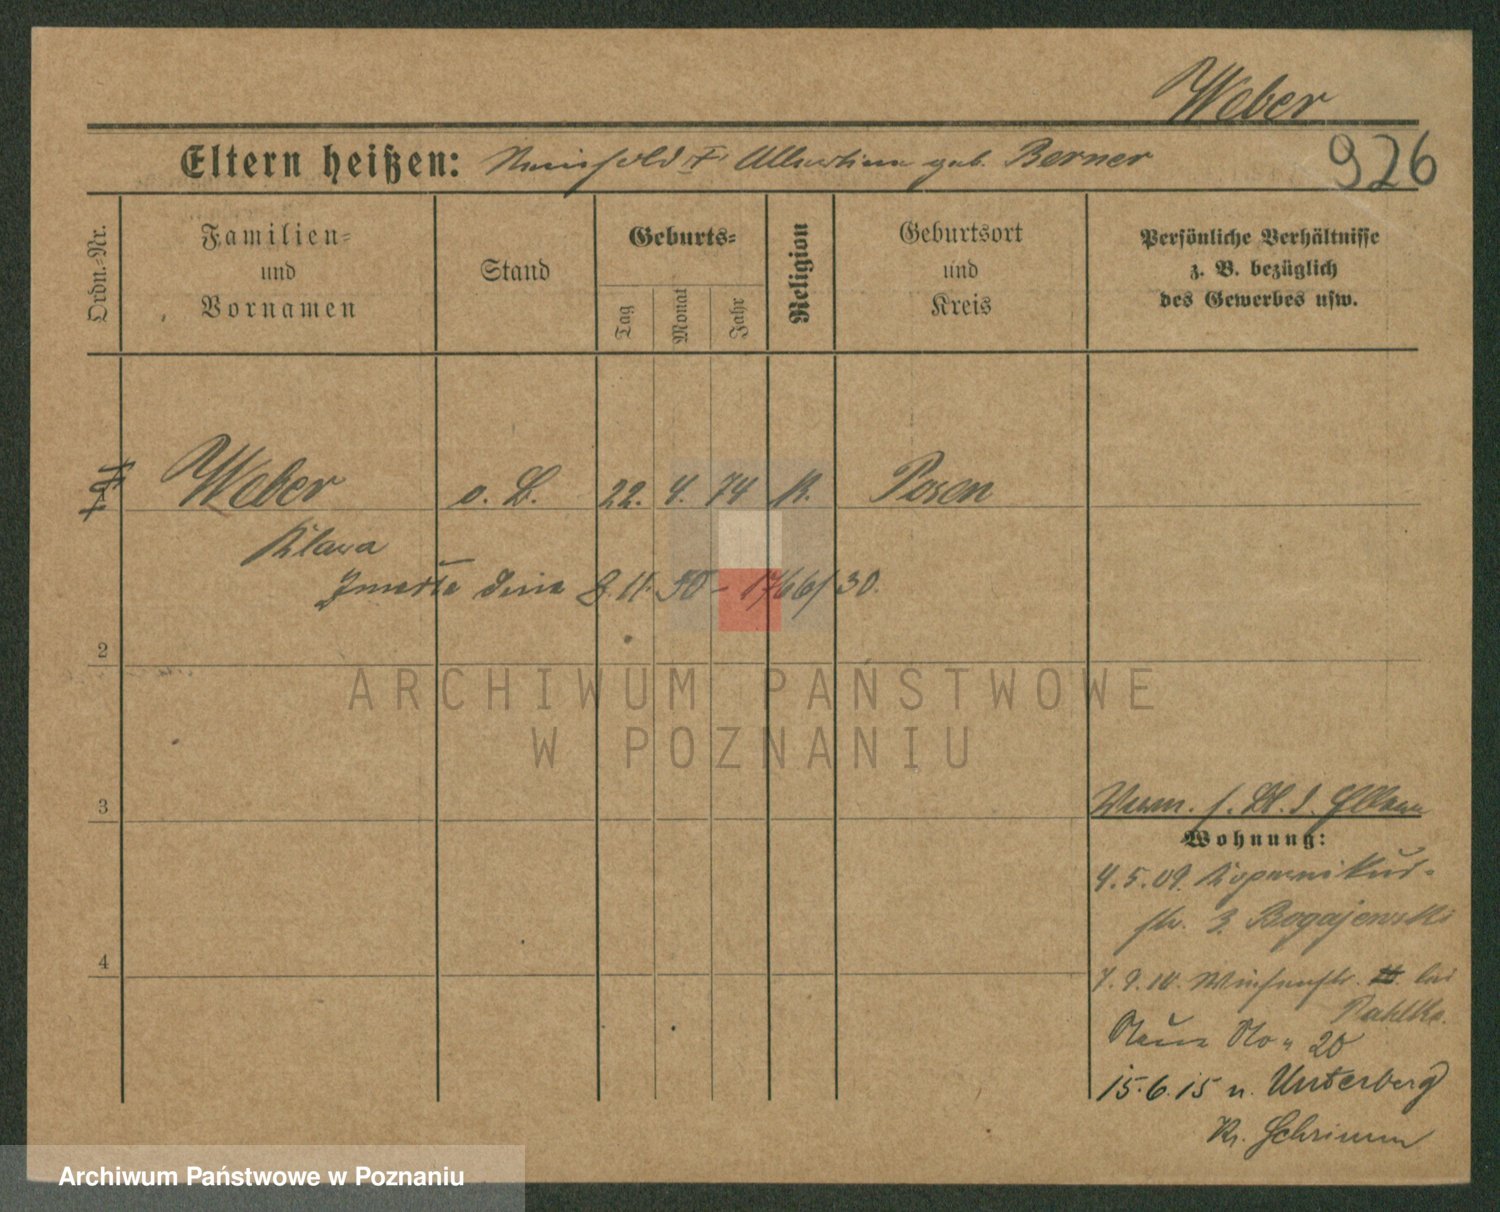 Weber
926
Eltern heißen: Reinhold † Albertine geb. Berner
Ordn.-Nr.
Familien-
und
Vornamen
Stand
Geburts-
Tag
Monat
Jahr
Religion
Geburtsort
und
Kreis
Persönliche Verhältnisse
z. B. bezüglich
des Gewerbes usw.
Weber o. B. 22. 4. 74 K. Posen
Klara
Zmarła dnia 8. 11. 30 - 1766/30.
2
ARCHIWUM PAŃSTWOWE
W POZNANIU
3
Wohnung:
4.5.09. Kopernikus-
str. 3 Bogajewski
4
7.9.10. bei
Pahlke.
Neue No 20
15.6.15 n. Unterberg
Kr. Schrimm
Archiwum Państwowe w Poznaniu